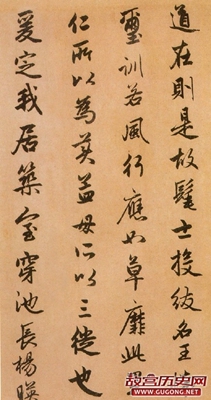 道在則是故髦士投紱名王
璽訓若風行應如草靡此里
仁所以為美孟母所以三徙也
爰定我居築室穿池長楊映
故宫历史网
www.GUGONG.NET